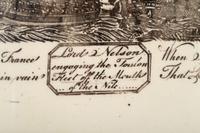 France
in vain
Lord Nelson
engaging the Toulon
Fleet off the Mouth
of the Nile
When
That